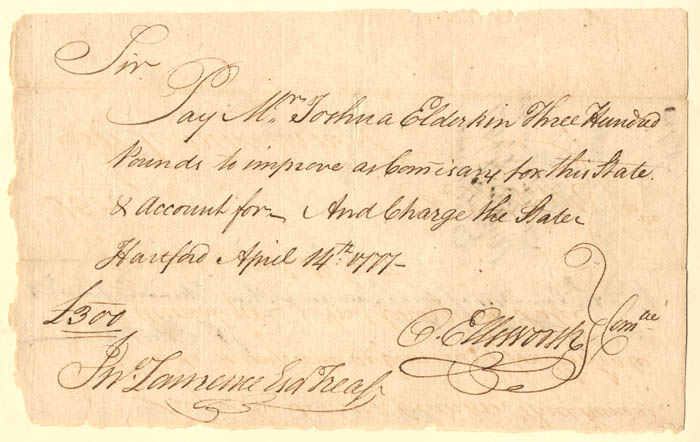 Sir
Pay Mr. Joshua Elderkin Three Hundred
Pounds to improve as Comisary for this State
& Account for_ And Charge the State
Hartford April 14th: 1777_
£300
O. Ellsworth } Comtee
Jno. Lawrence Esqr Treasr